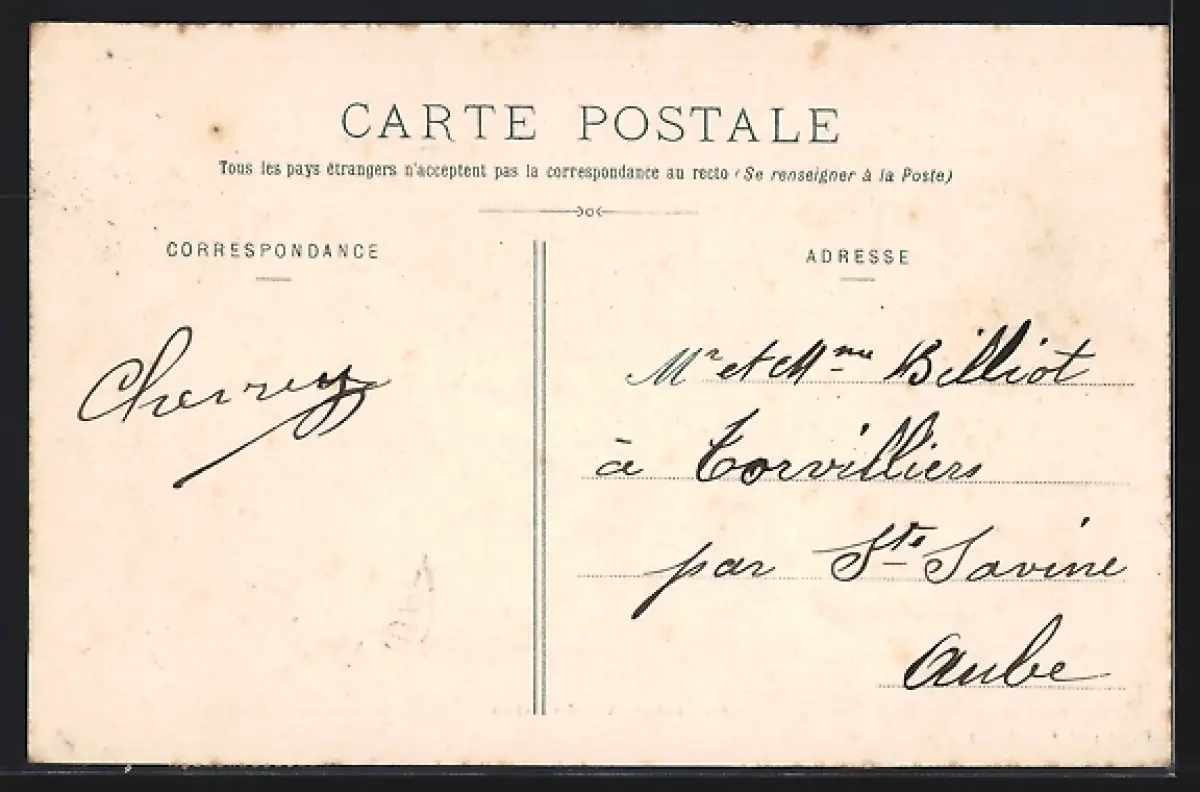 CARTE POSTALE
Tous les pays étrangers n'acceptent pas la correspondance au recto (Se renseigner à la Poste)
CORRESPONDANCE
ADRESSE
Cherrey
Mr et Mme Billiot
à Torvilliers
par Ste Savine
Aube